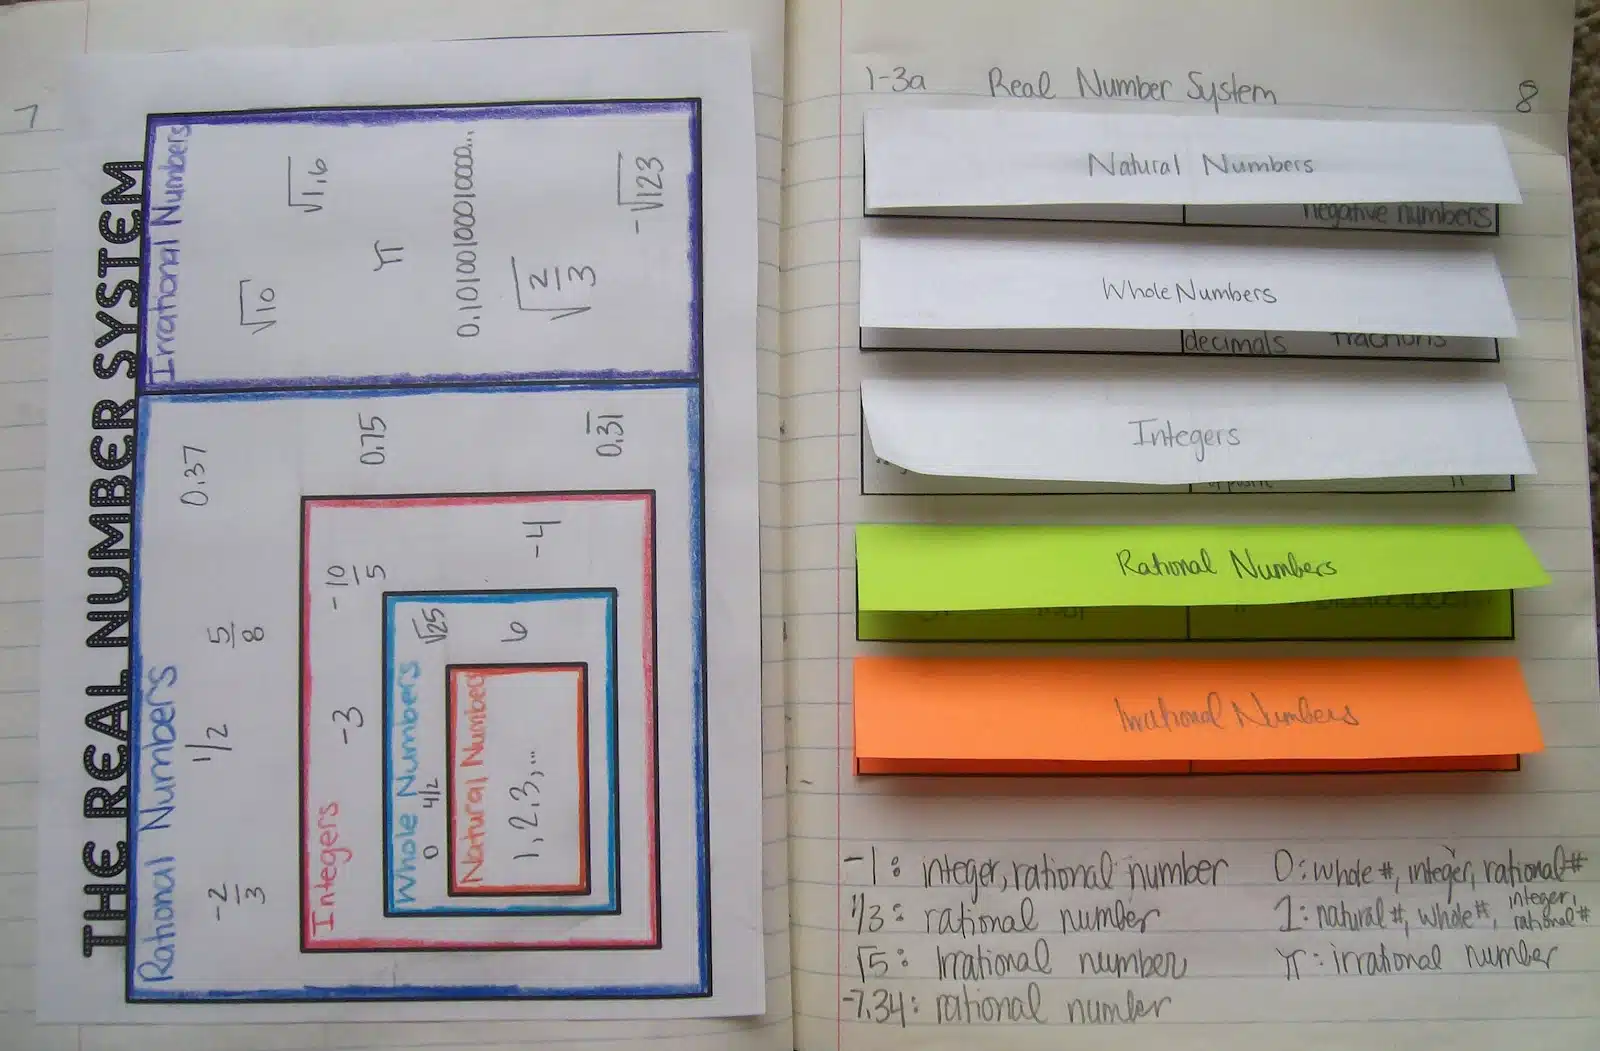 7
THE REAL NUMBER SYSTEM
Rational Numbers
-2/3
1/2
5/8
0.37
0.75
0.3̅1̅
Integers
-3
-10/5
-4
Whole Numbers
0
4/2
√25
6
Natural Numbers
1,2,3,...
Irrational Numbers
√10
√1.6
π
0.10100100010000...
√2/3
-√123
1-3a Real Number System 8
Natural Numbers
negative numbers
Whole Numbers
decimals fractions
Integers
opposite
Rational Numbers
Irrational Numbers
-1: integer, rational number
1/3: rational number
√5: Irrational number
-7.34: rational number
0: whole #, integer, rational #
1: natural #, whole #, integer, rational #
π: irrational number